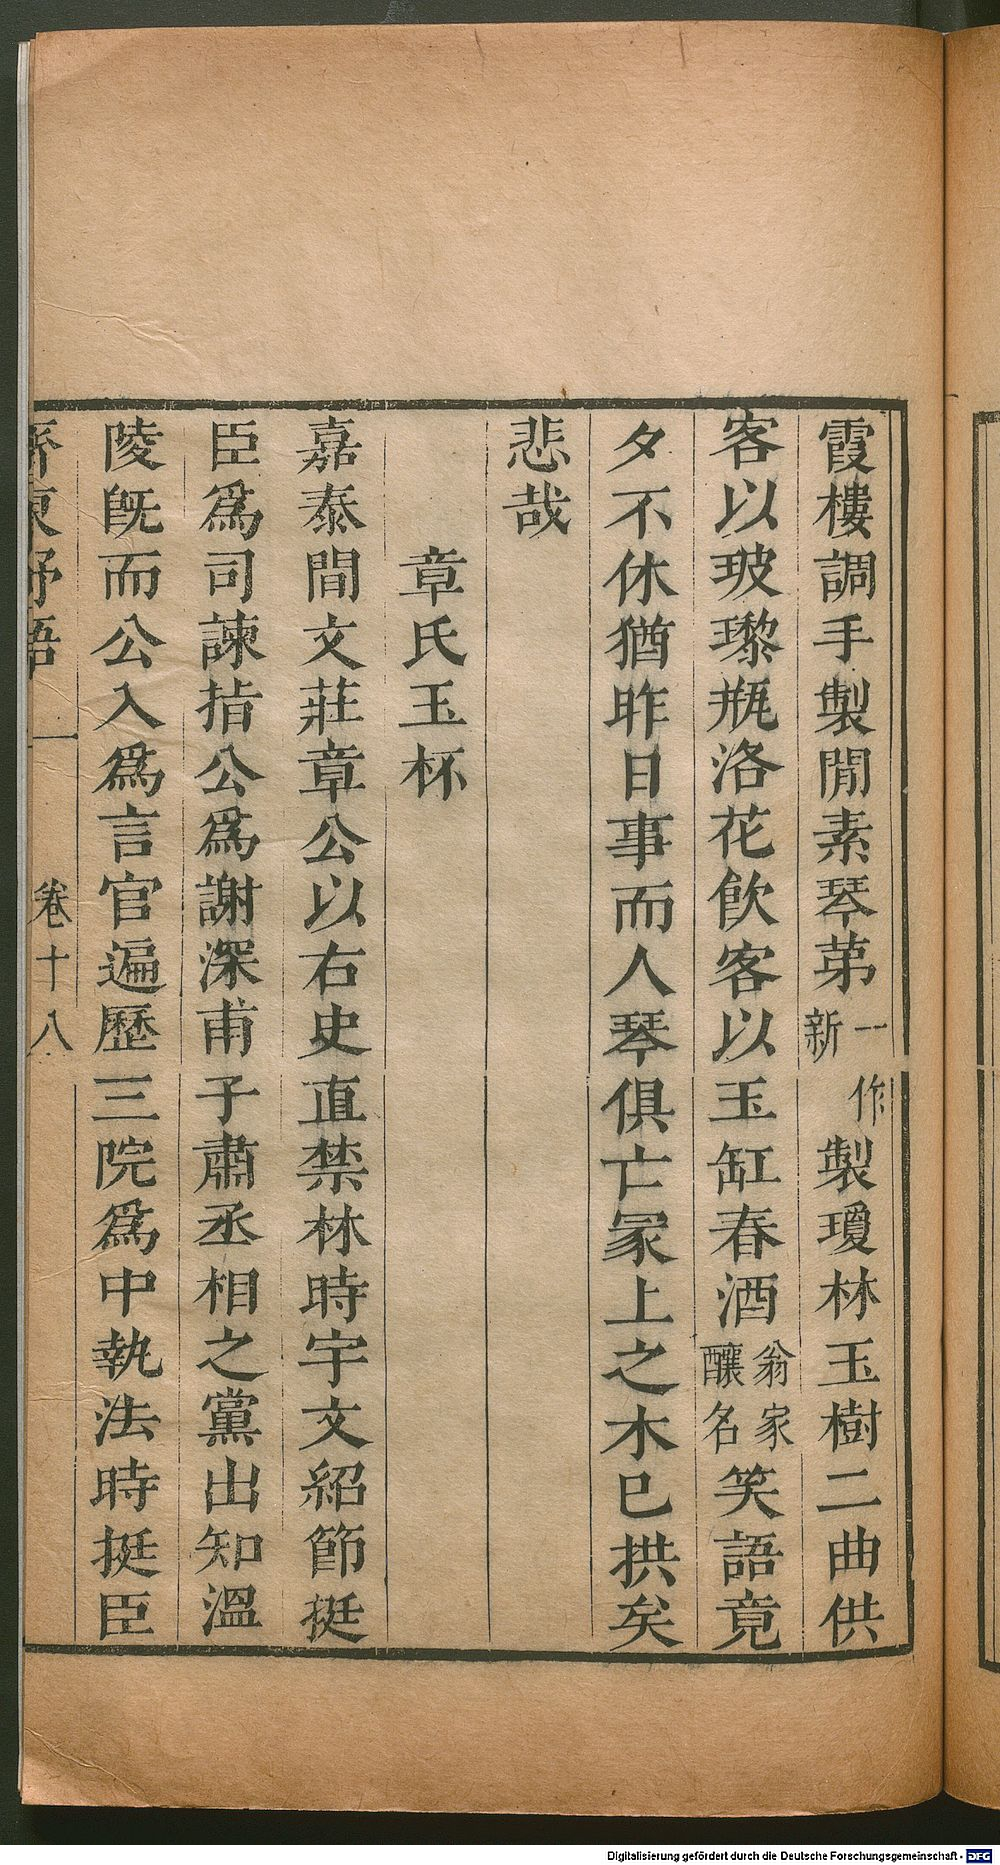 霞樓調手製閒素琴第一新作製瓊林玉樹二曲供
客以玻瓈瓶洛花飲客以玉缸春酒翁家釀名笑語竟
夕不休猶昨日事而人琴俱亡冢上之木已拱矣
悲哉
章氏玉杯
嘉泰間文莊章公以右史直禁林時宇文紹節挺
臣爲司諫指公爲謝深甫子肅丞相之黨出知溫
陵旣而公入爲言官遍歷三院爲中執法時挺臣
齊東野語 卷十八
Digitalisierung gefördert durch die Deutsche Forschungsgemeinschaft - DFG